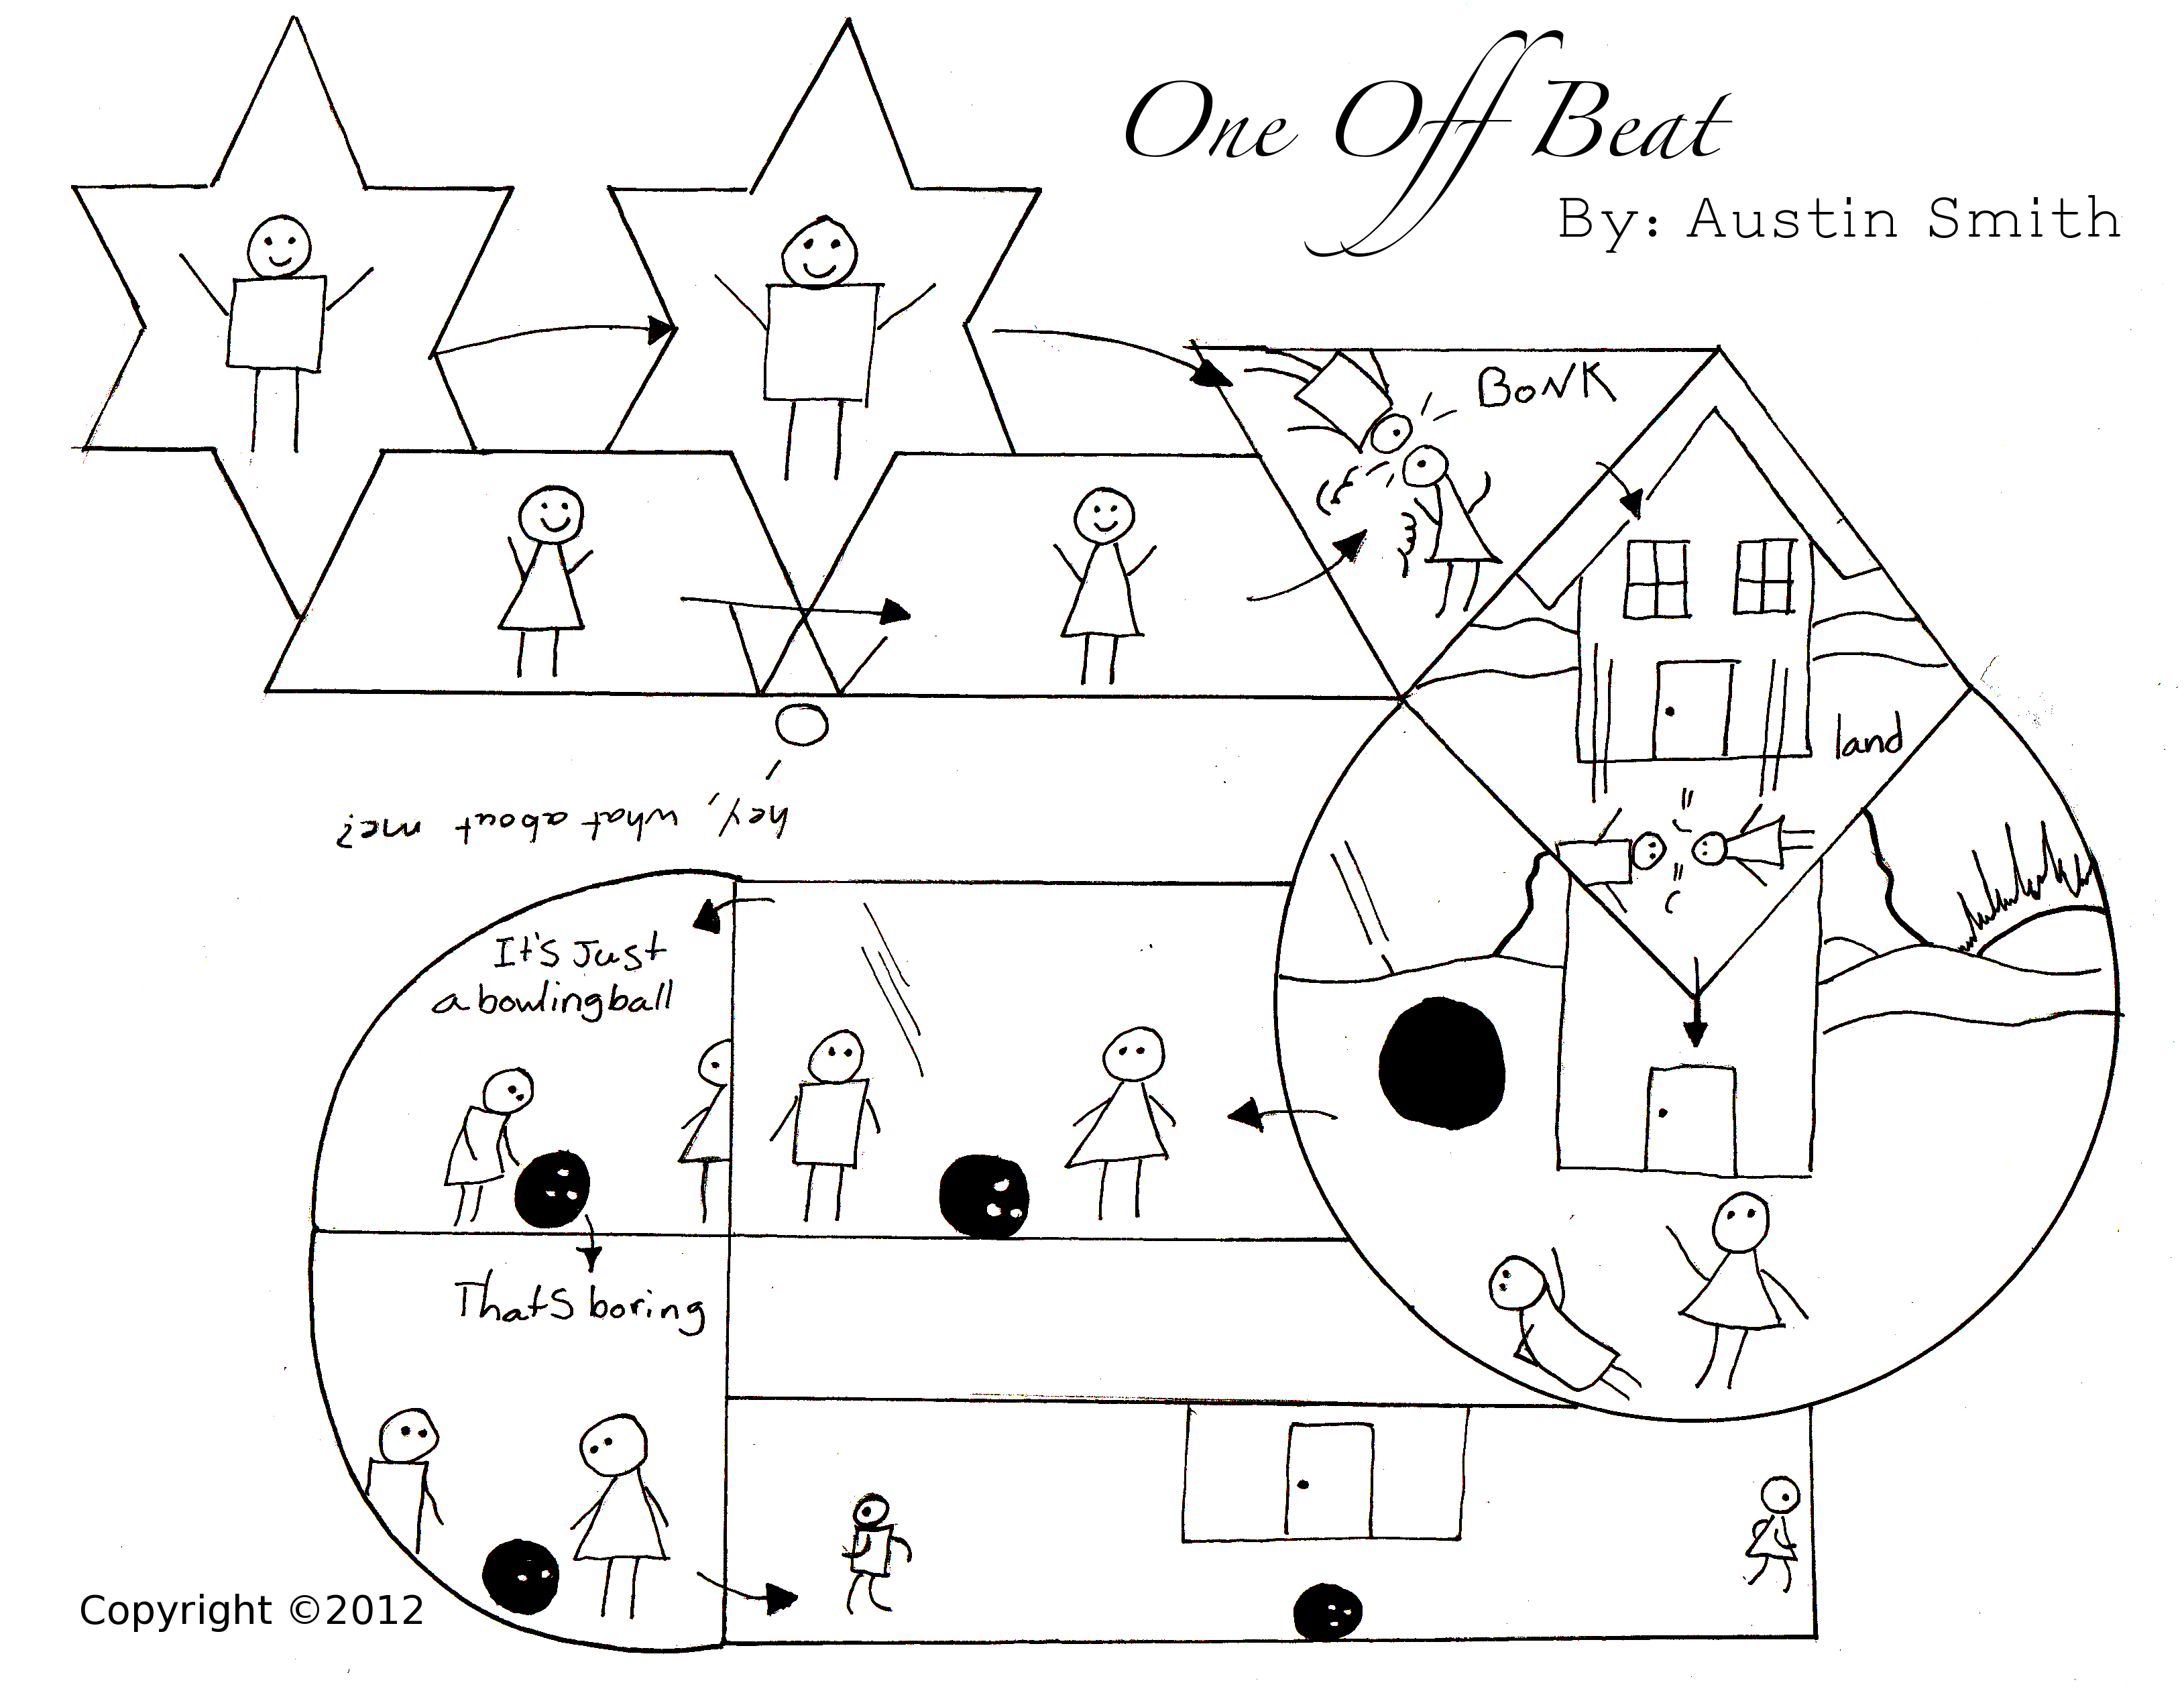 One Off Beat
By: Austin Smith
BONK
land
hey, what about me?
It's Just
a bowlingball
Thats boring
Copyright ©2012